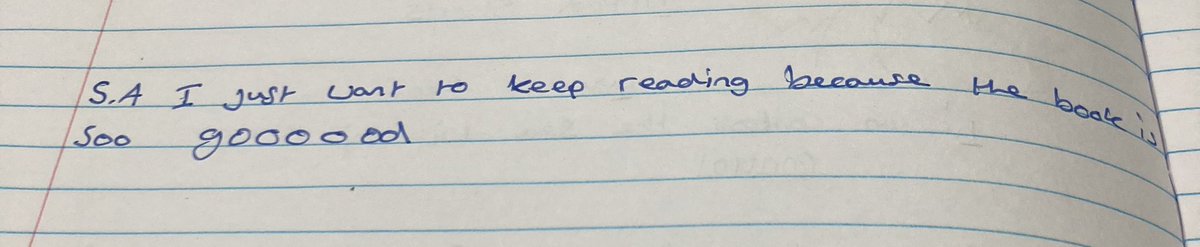 S.A I just want to keep reading because the book is
Soo goooood